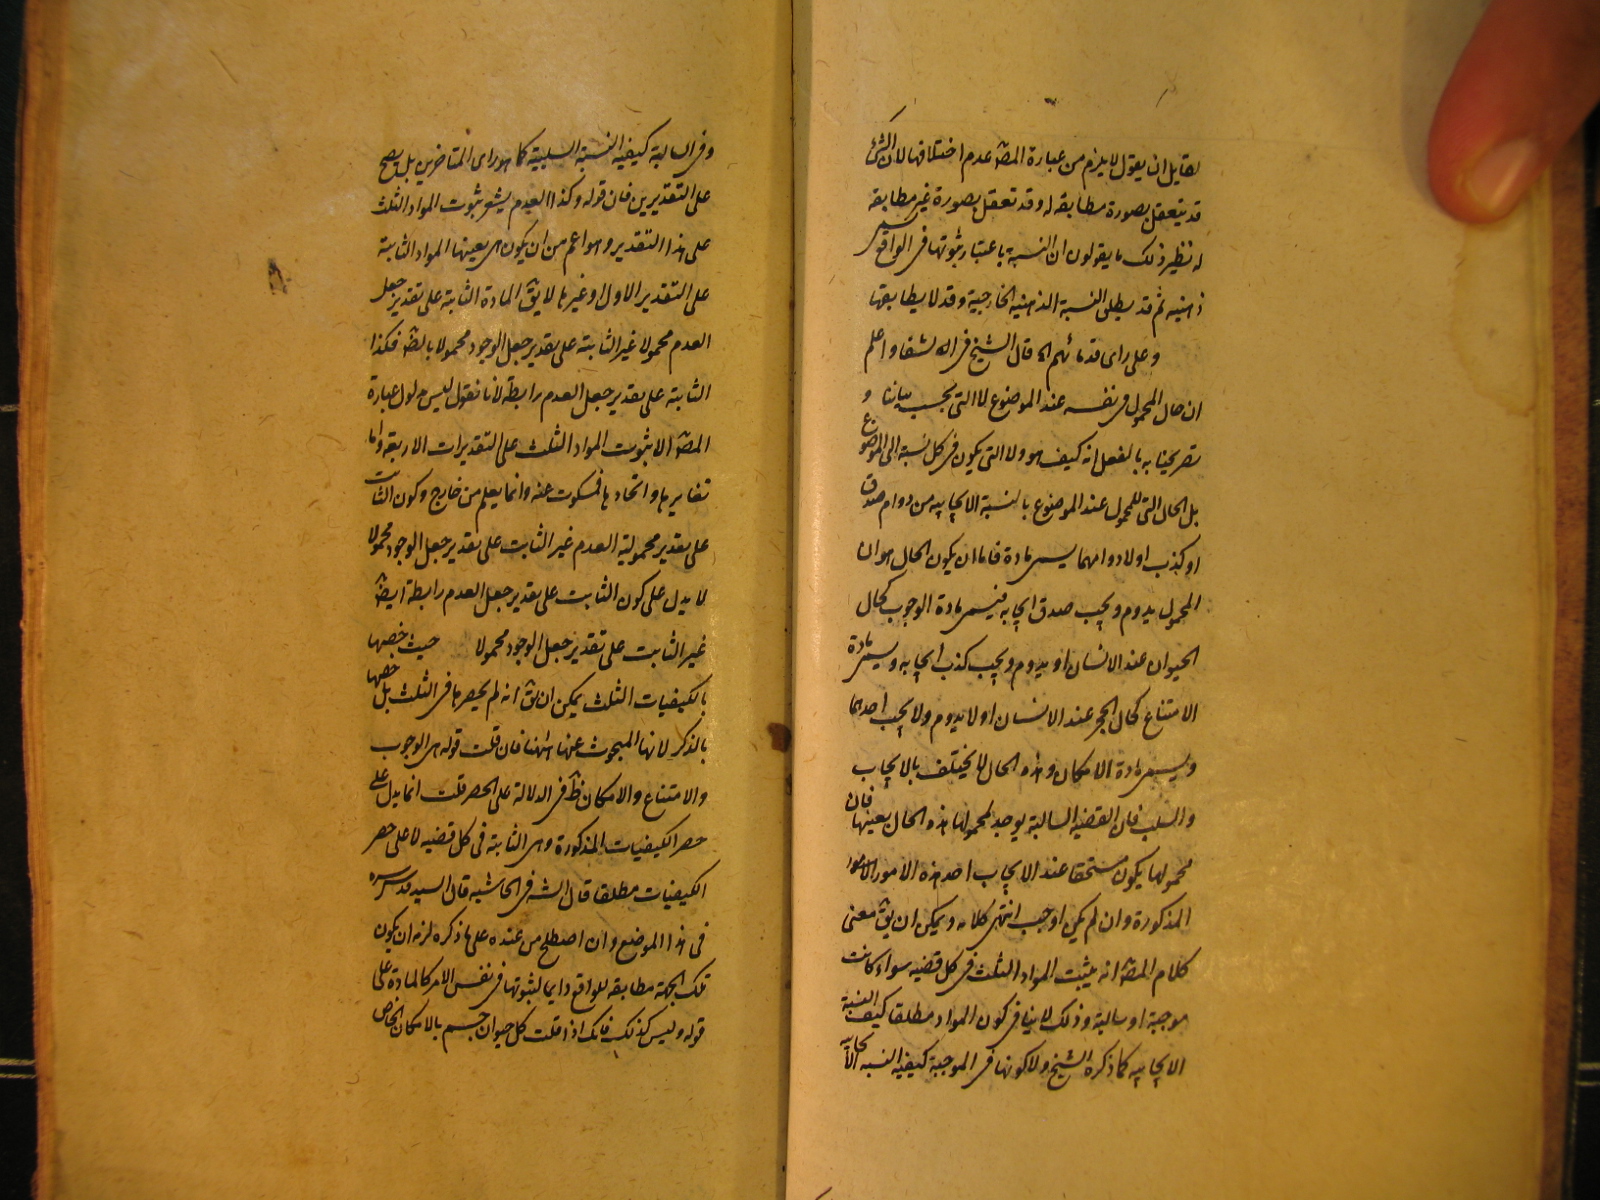 لقايل ان يقول لا يلزم من عبارة المصـ عدم اختلافها لان الشئ
قد يتعقل بصورة مطابقة له وقد تعقل بصورة غير مطابقة
له نظير ذلك ما يقولون ان النسبة باعتبار ثبوتها فى الواقع ليس
ذهنيه ثم قد يطلق النسبة الذهنيه الخارجية وقد لا يطابقها
وعلى راى قدمائهم اه قال الشيخ فى الشفا واعلم
ان حال المحمول فى نفسه عند الموضوع لا التى بحسب بياننا و
تصريحنا به بالفعل انه كيف هو ولا التى يكون فى كل نسبة الى الموضوع
بل الحال التى للمحمول عند الموضوع بالنسبة الايجابيه من دوام صدق
او كذب او لا دوامهما يسمى مادة فاما ان يكون الحال هو ان
المحمول يدوم ويجب صدق ايجابه فيسمى مادة الوجوب كحال
الحيوان عند الانسان او يدوم ويجب كذب ايجابه ويسمى مادة
الامتناع كحال الحجر عند الانسان او لا يدوم ولا يجب احدهما
ويسمى مادة الامكان وهذه الحال لا يختلف بالايجاب
والسلب فان القضيه السالبة يوجد لمحمولها هذه الحال بعينها فان
محمولها يكون مستحقا عند الايجاب احد هذه الامور الامور
المذكورة وان لم يكن اوجب انتهى كلامه ويمكن ان يقـ معنى
كلام المصـ انه يثبت المواد الثلث فى كل قضيه سواء كانت
موجبة او سالبة وذلك لا ينافى كون المواد مطلقا كيف النسبة
الايجابيه كما ذكره الشيخ ولا كونها فى الموجبة كيفيه النسبه الايجابيه
وفى السالبة كيفيه النسبة السلبية كما هو راى المتاخرين بل يصح
على التقديرين فان قوله وكذا العدم يشعر ثبوت المواد الثلث
على هذا التقدير وهو اعم من ان يكون هى بعينها المواد الثابتة
على التقدير الاول او غيرها لا يقـ المادة الثابتة على تقدير جعل
العدم محمولا غير الثابتة على تقدير جعل الوجود محمولا بالضـ فكذا
الثابتة على تقدير جعل العدم رابطة لانا نقول ليس مدلول عبارة
المصـ الا ثبوت المواد الثلث على التقديرات الاربعة واما
تغايرها واتحادها فمسكوت عنه وانما يعلم من خارج وكون الثابت
على تقدير محمولية العدم غير الثابت على تقدير جعل الوجود محمولا
لا يدل على كون الثابت على تقدير جعل العدم رابطة ايضـ
غير الثابت على تقدير جعل الوجود محمولا حيث خصها
بالكيفيات الثلث يمكن ان يقـ انه لم يحصرها فى الثلث بل خصها
بالذكر لانها المبحوث عنها ههنا فان قلت قوله هى الوجوب
والامتناع والامكان ظـ فى الدلالة على الحصر قلت انما يدل على
حصر الكيفيات المذكورة وهى الثابتة فى كل قضيه لا على حصر
الكيفيات مطلقا قال الشـ فى الحاشيه قال السيد قدس سره
فى هذا الموضع وان اصطلح من عنده على ما ذكره لزمه ان يكون
تلك الجهة مطابقه للواقع دايما لثبوتها فى نفس الامر كالمادة على
قوله وليس كذلك فانك اذا قلت كل حيوان جسم بالامكان الخاص